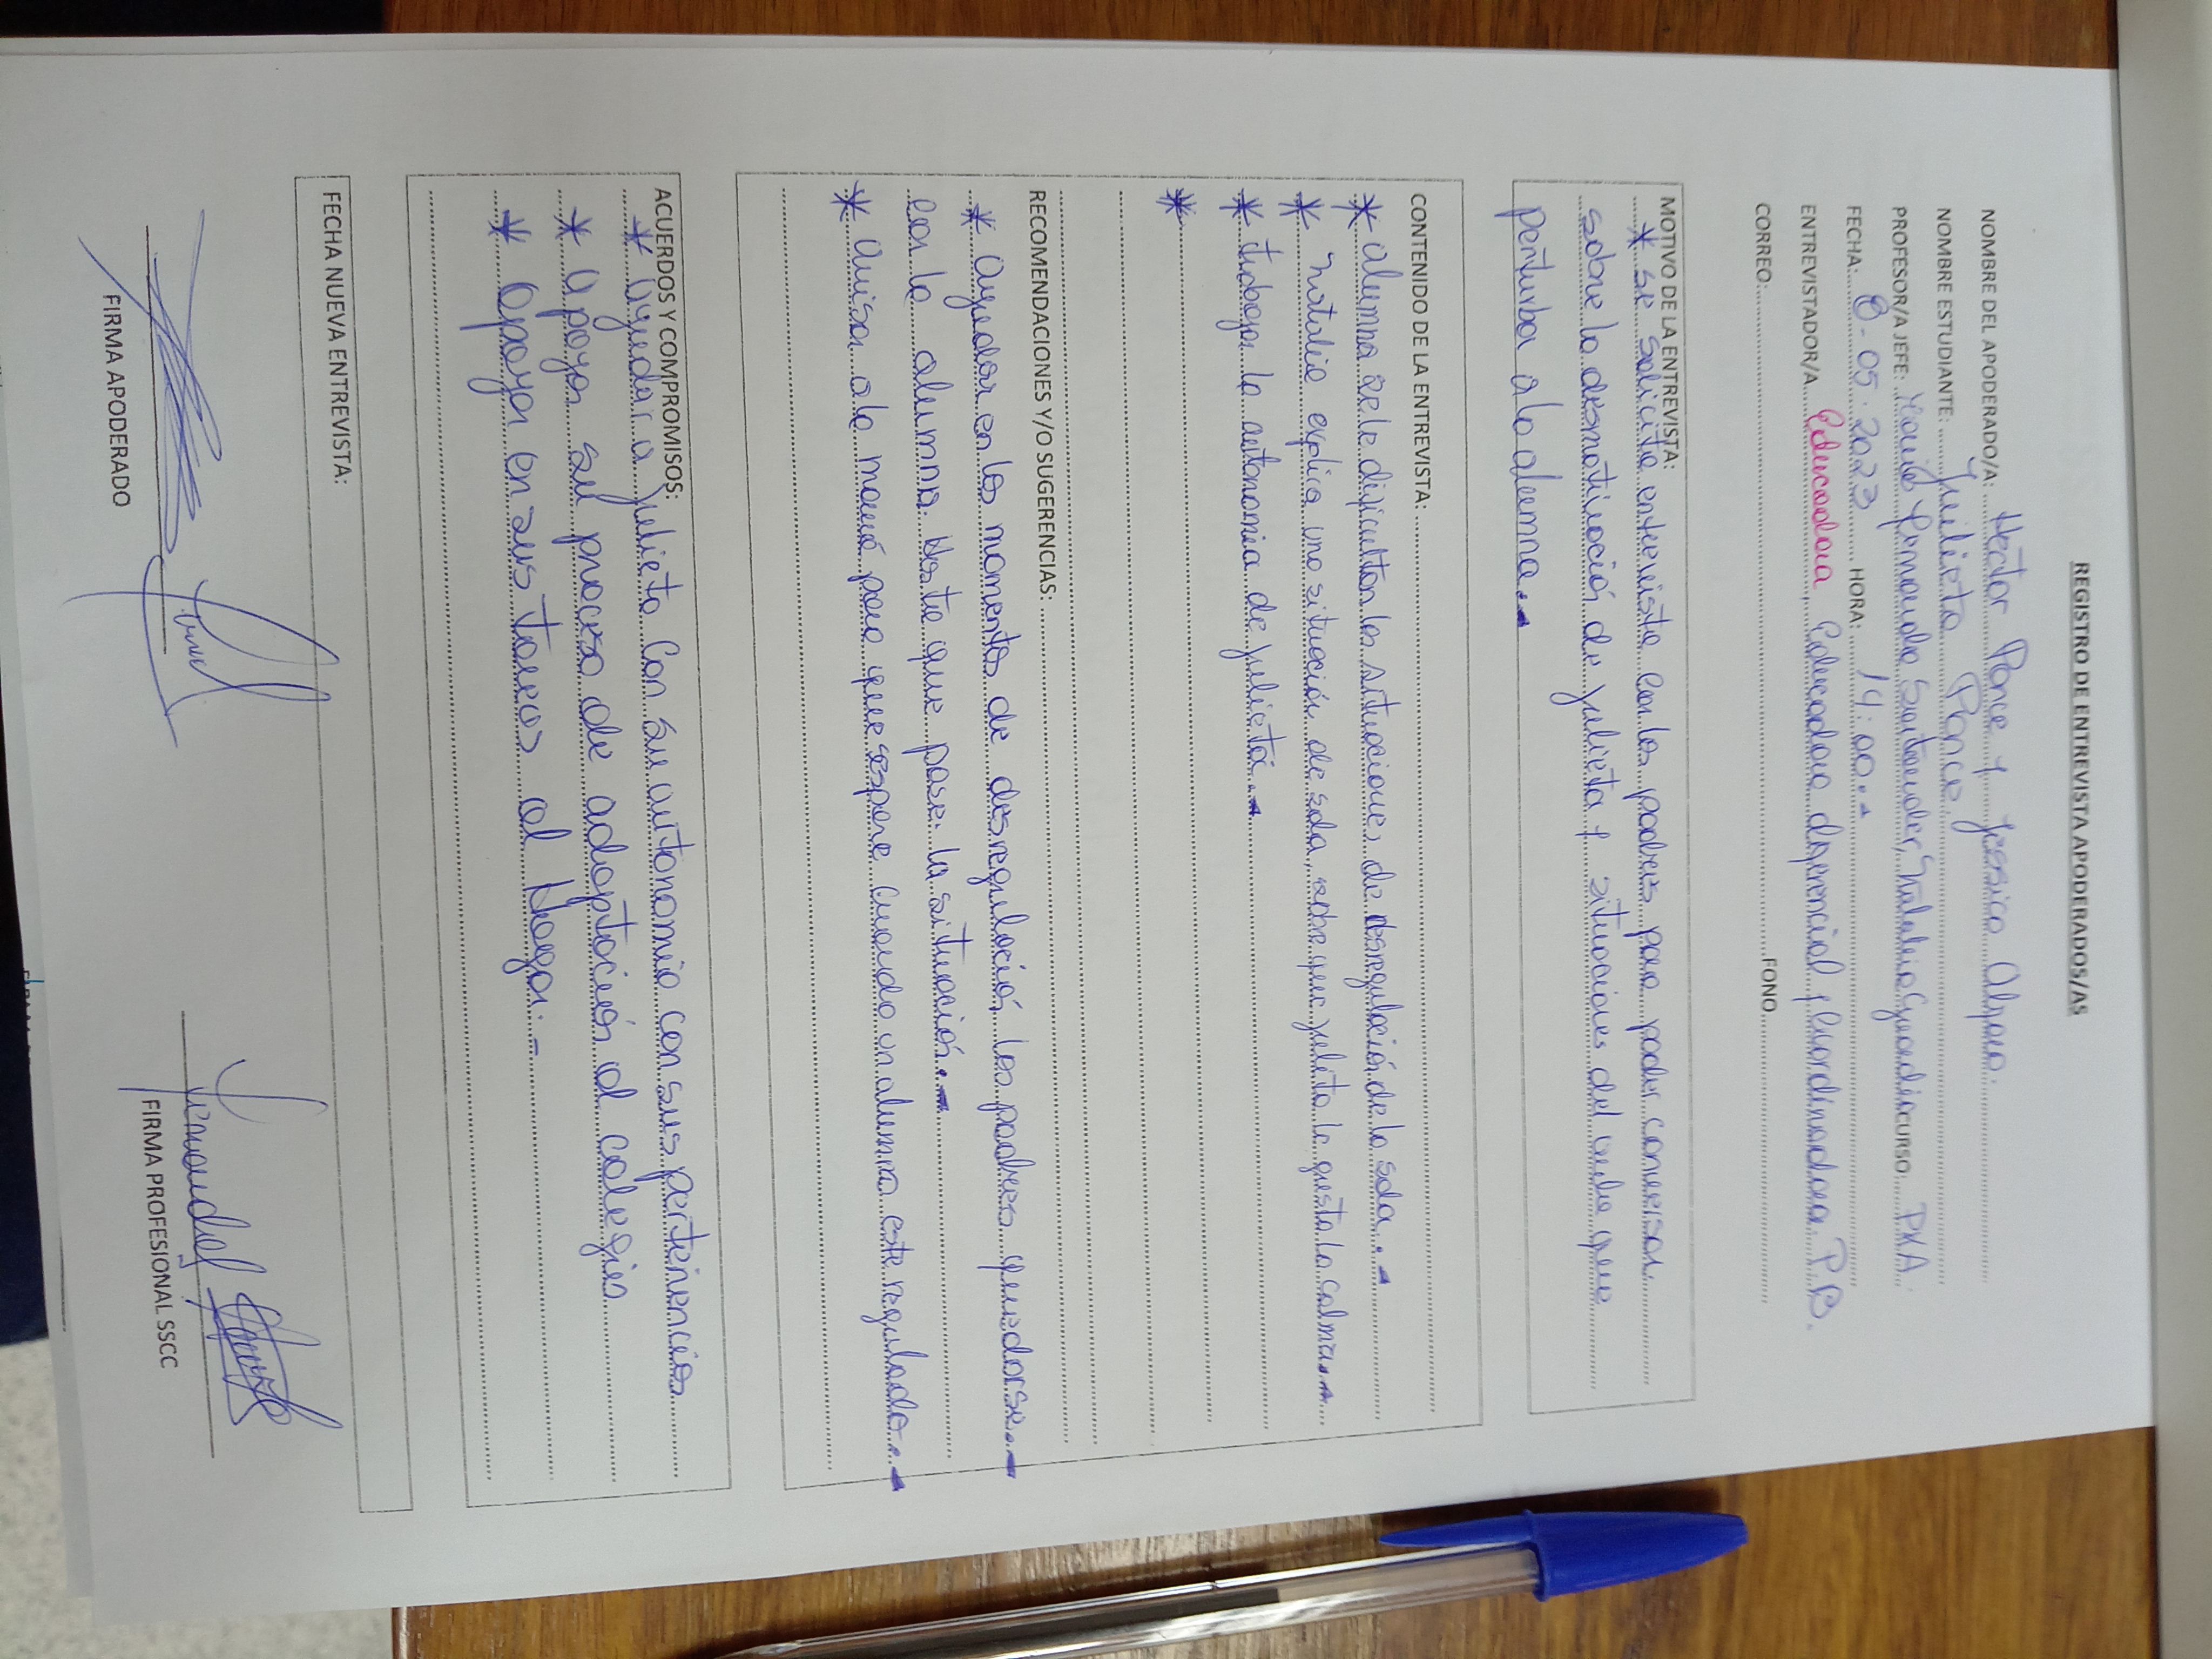 REGISTRO DE ENTREVISTA APODERADOS/AS
NOMBRE DEL APODERADO/A: Hector Ponce y Jessica
NOMBRE ESTUDIANTE: Julieta Ponce.
PROFESOR/A JEFE: Fernanda Santander, Natalia CURSO PKA.
FECHA: 8-05-2023 HORA: 14:00.-
ENTREVISTADOR/A Educadora Educadora diferencial y Coordinadora P.B.
CORREO FONO
MOTIVO DE LA ENTREVISTA:
* se solicita entrevista con los padres para poder conversar
sobre la desmotivación de Julieta y situaciones del que
perturba a la alumna.-
CONTENIDO DE LA ENTREVISTA:
* alumna se le dificultan las situaciones de desregulación de la sala.-
* Natalia explica una situación de sala, sobre que Julieta le gusta la calma.-
* trabajar la autonomia de Julieta.-
*
RECOMENDACIONES Y/O SUGERENCIAS:
* ayudar en los momentos de desregulación los padres quedarse.-
con la alumna. Hasta que pase la situación.-
* avisar a la mamá para que espere cuando un alumna este regulado.-
ACUERDOS Y COMPROMISOS:
* ayudar a Julieta con su autonomia con sus pertenencias
* apoyar su proceso de adaptación al colegio
* apoyar en sus tareas al Hogar.-
FECHA NUEVA ENTREVISTA:
FIRMA APODERADO
FIRMA PROFESIONAL SSCC